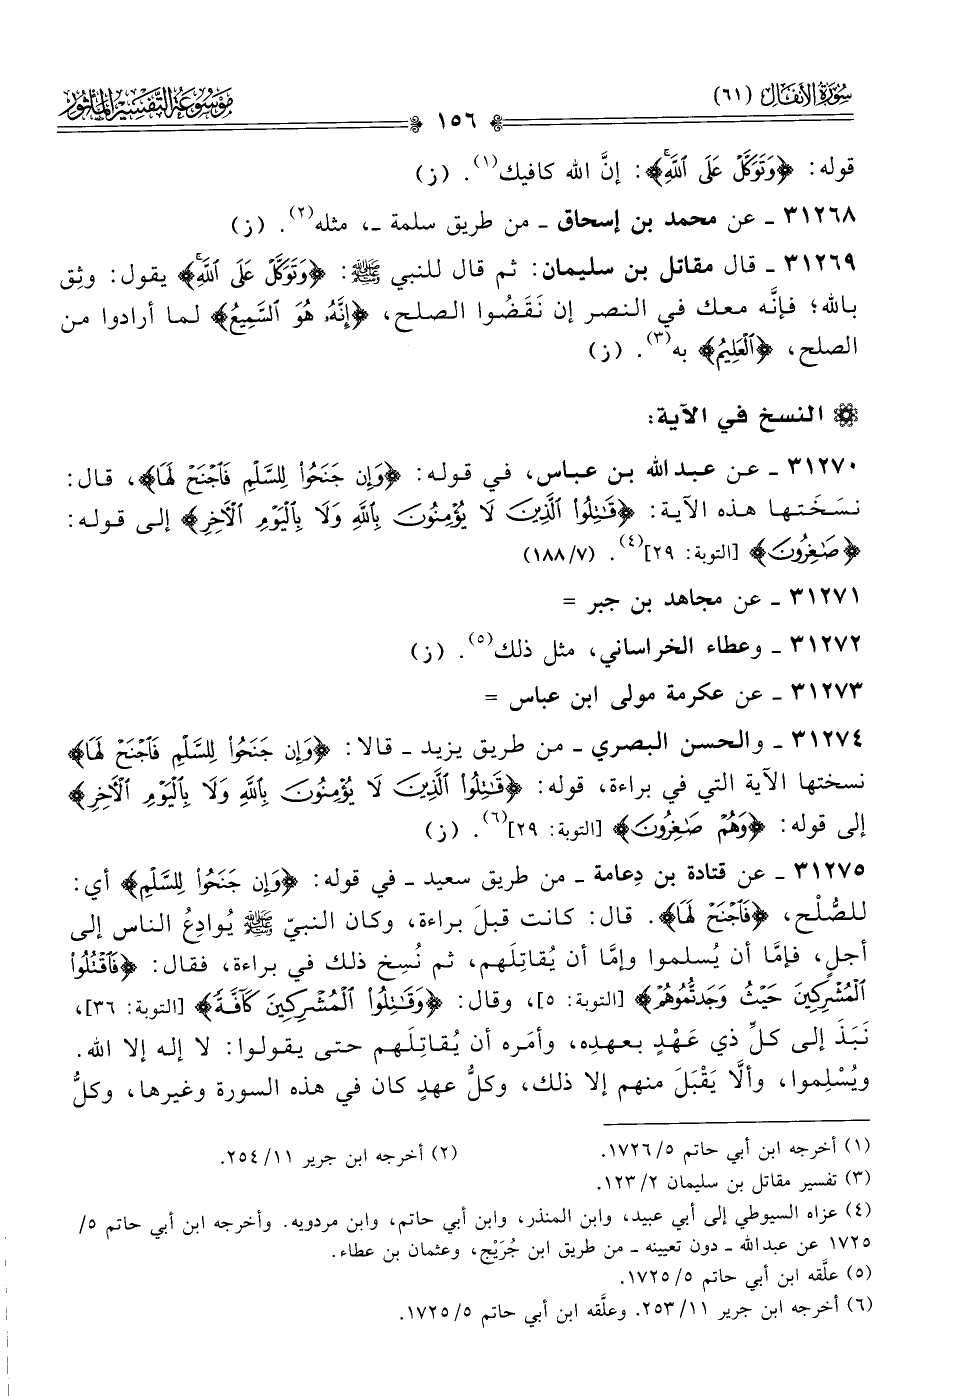 سورة الأنفال (٦١)
موسوعة التفسير المأثور
١٥٦
قوله: ﴿وَتَوَكَّلْ عَلَى ٱللَّهِۚ﴾: إنَّ الله كافيك(١). (ز)
٣١٢٦٨ ـ عن محمد بن إسحاق ـ من طريق سلمة ـ، مثله(٢). (ز)
٣١٢٦٩ ـ قال مقاتل بن سليمان: ثم قال للنبي ﷺ: ﴿وَتَوَكَّلْ عَلَى ٱللَّهِۚ﴾ يقول: وثِق
بالله؛ فإنَّه معك في النصر إن نَقَضُوا الصلح، ﴿إِنَّهُۥ هُوَ ٱلسَّمِيعُ﴾ لما أرادوا من
الصلح، ﴿ٱلْعَلِيمُ﴾ به(٣). (ز)
النسخ في الآية:
٣١٢٧٠ ـ عن عبد الله بن عباس، في قوله: ﴿وَإِن جَنَحُوا۟ لِلسَّلْمِ فَٱجْنَحْ لَهَا﴾، قال:
نسَخَتها هذه الآية: ﴿قَٰتِلُوا۟ ٱلَّذِينَ لَا يُؤْمِنُونَ بِٱللَّهِ وَلَا بِٱلْيَوْمِ ٱلْأَخِرِ﴾ إلى قوله:
﴿صَٰغِرُونَ﴾ [التوبة: ٢٩](٤). (٧/١٨٨)
٣١٢٧١ ـ عن مجاهد بن جبر =
٣١٢٧٢ ـ وعطاء الخراساني، مثل ذلك(٥). (ز)
٣١٢٧٣ ـ عن عكرمة مولى ابن عباس =
٣١٢٧٤ ـ والحسن البصري ـ من طريق يزيد ـ قالا: ﴿وَإِن جَنَحُوا۟ لِلسَّلْمِ فَٱجْنَحْ لَهَا﴾
نسختها الآية التي في براءة، قوله: ﴿قَٰتِلُوا۟ ٱلَّذِينَ لَا يُؤْمِنُونَ بِٱللَّهِ وَلَا بِٱلْيَوْمِ ٱلْأَخِرِ﴾
إلى قوله: ﴿وَهُمْ صَٰغِرُونَ﴾ [التوبة: ٢٩](٦). (ز)
٣١٢٧٥ ـ عن قتادة بن دِعامة ـ من طريق سعيد ـ في قوله: ﴿وَإِن جَنَحُوا۟ لِلسَّلْمِ﴾ أي:
للصُّلْح، ﴿فَٱجْنَحْ لَهَا﴾. قال: كانت قبلَ براءة، وكان النبيّ ﷺ يُوادِعُ الناس إلى
أجلٍ، فإمَّا أن يُسلموا وإمَّا أن يُقاتِلَهم، ثم نُسِخ ذلك في براءة، فقال: ﴿فَٱقْتُلُوا۟
ٱلْمُشْرِكِينَ حَيْثُ وَجَدتُّمُوهُمْ﴾ [التوبة: ٥]، وقال: ﴿وَقَٰتِلُوا۟ ٱلْمُشْرِكِينَ كَآفَّةً﴾ [التوبة: ٣٦]،
نَبَذَ إلى كلِّ ذي عَهْدٍ بعهدِه، وأمَره أن يُقاتِلَهم حتى يقولوا: لا إله إلا الله.
ويُسْلِموا، وألَّا يَقْبَلَ منهم إلا ذلك، وكلُّ عهدٍ كان في هذه السورة وغيرها، وكلُّ
(١) أخرجه ابن أبي حاتم ٥/ ١٧٢٦.
(٢) أخرجه ابن جرير ١١/ ٢٥٤.
(٣) تفسير مقاتل بن سليمان ٢/ ١٢٣.
(٤) عزاه السيوطي إلى أبي عبيد، وابن المنذر، وابن أبي حاتم، وابن مردويه. وأخرجه ابن أبي حاتم ٥/
١٧٢٥ عن عبد الله ـ دون تعيينه ـ من طريق ابن جُرَيْج، وعثمان بن عطاء.
(٥) علَّقه ابن أبي حاتم ٥/ ١٧٢٥.
(٦) أخرجه ابن جرير ١١/ ٢٥٣. وعلَّقه ابن أبي حاتم ٥/ ١٧٢٥.